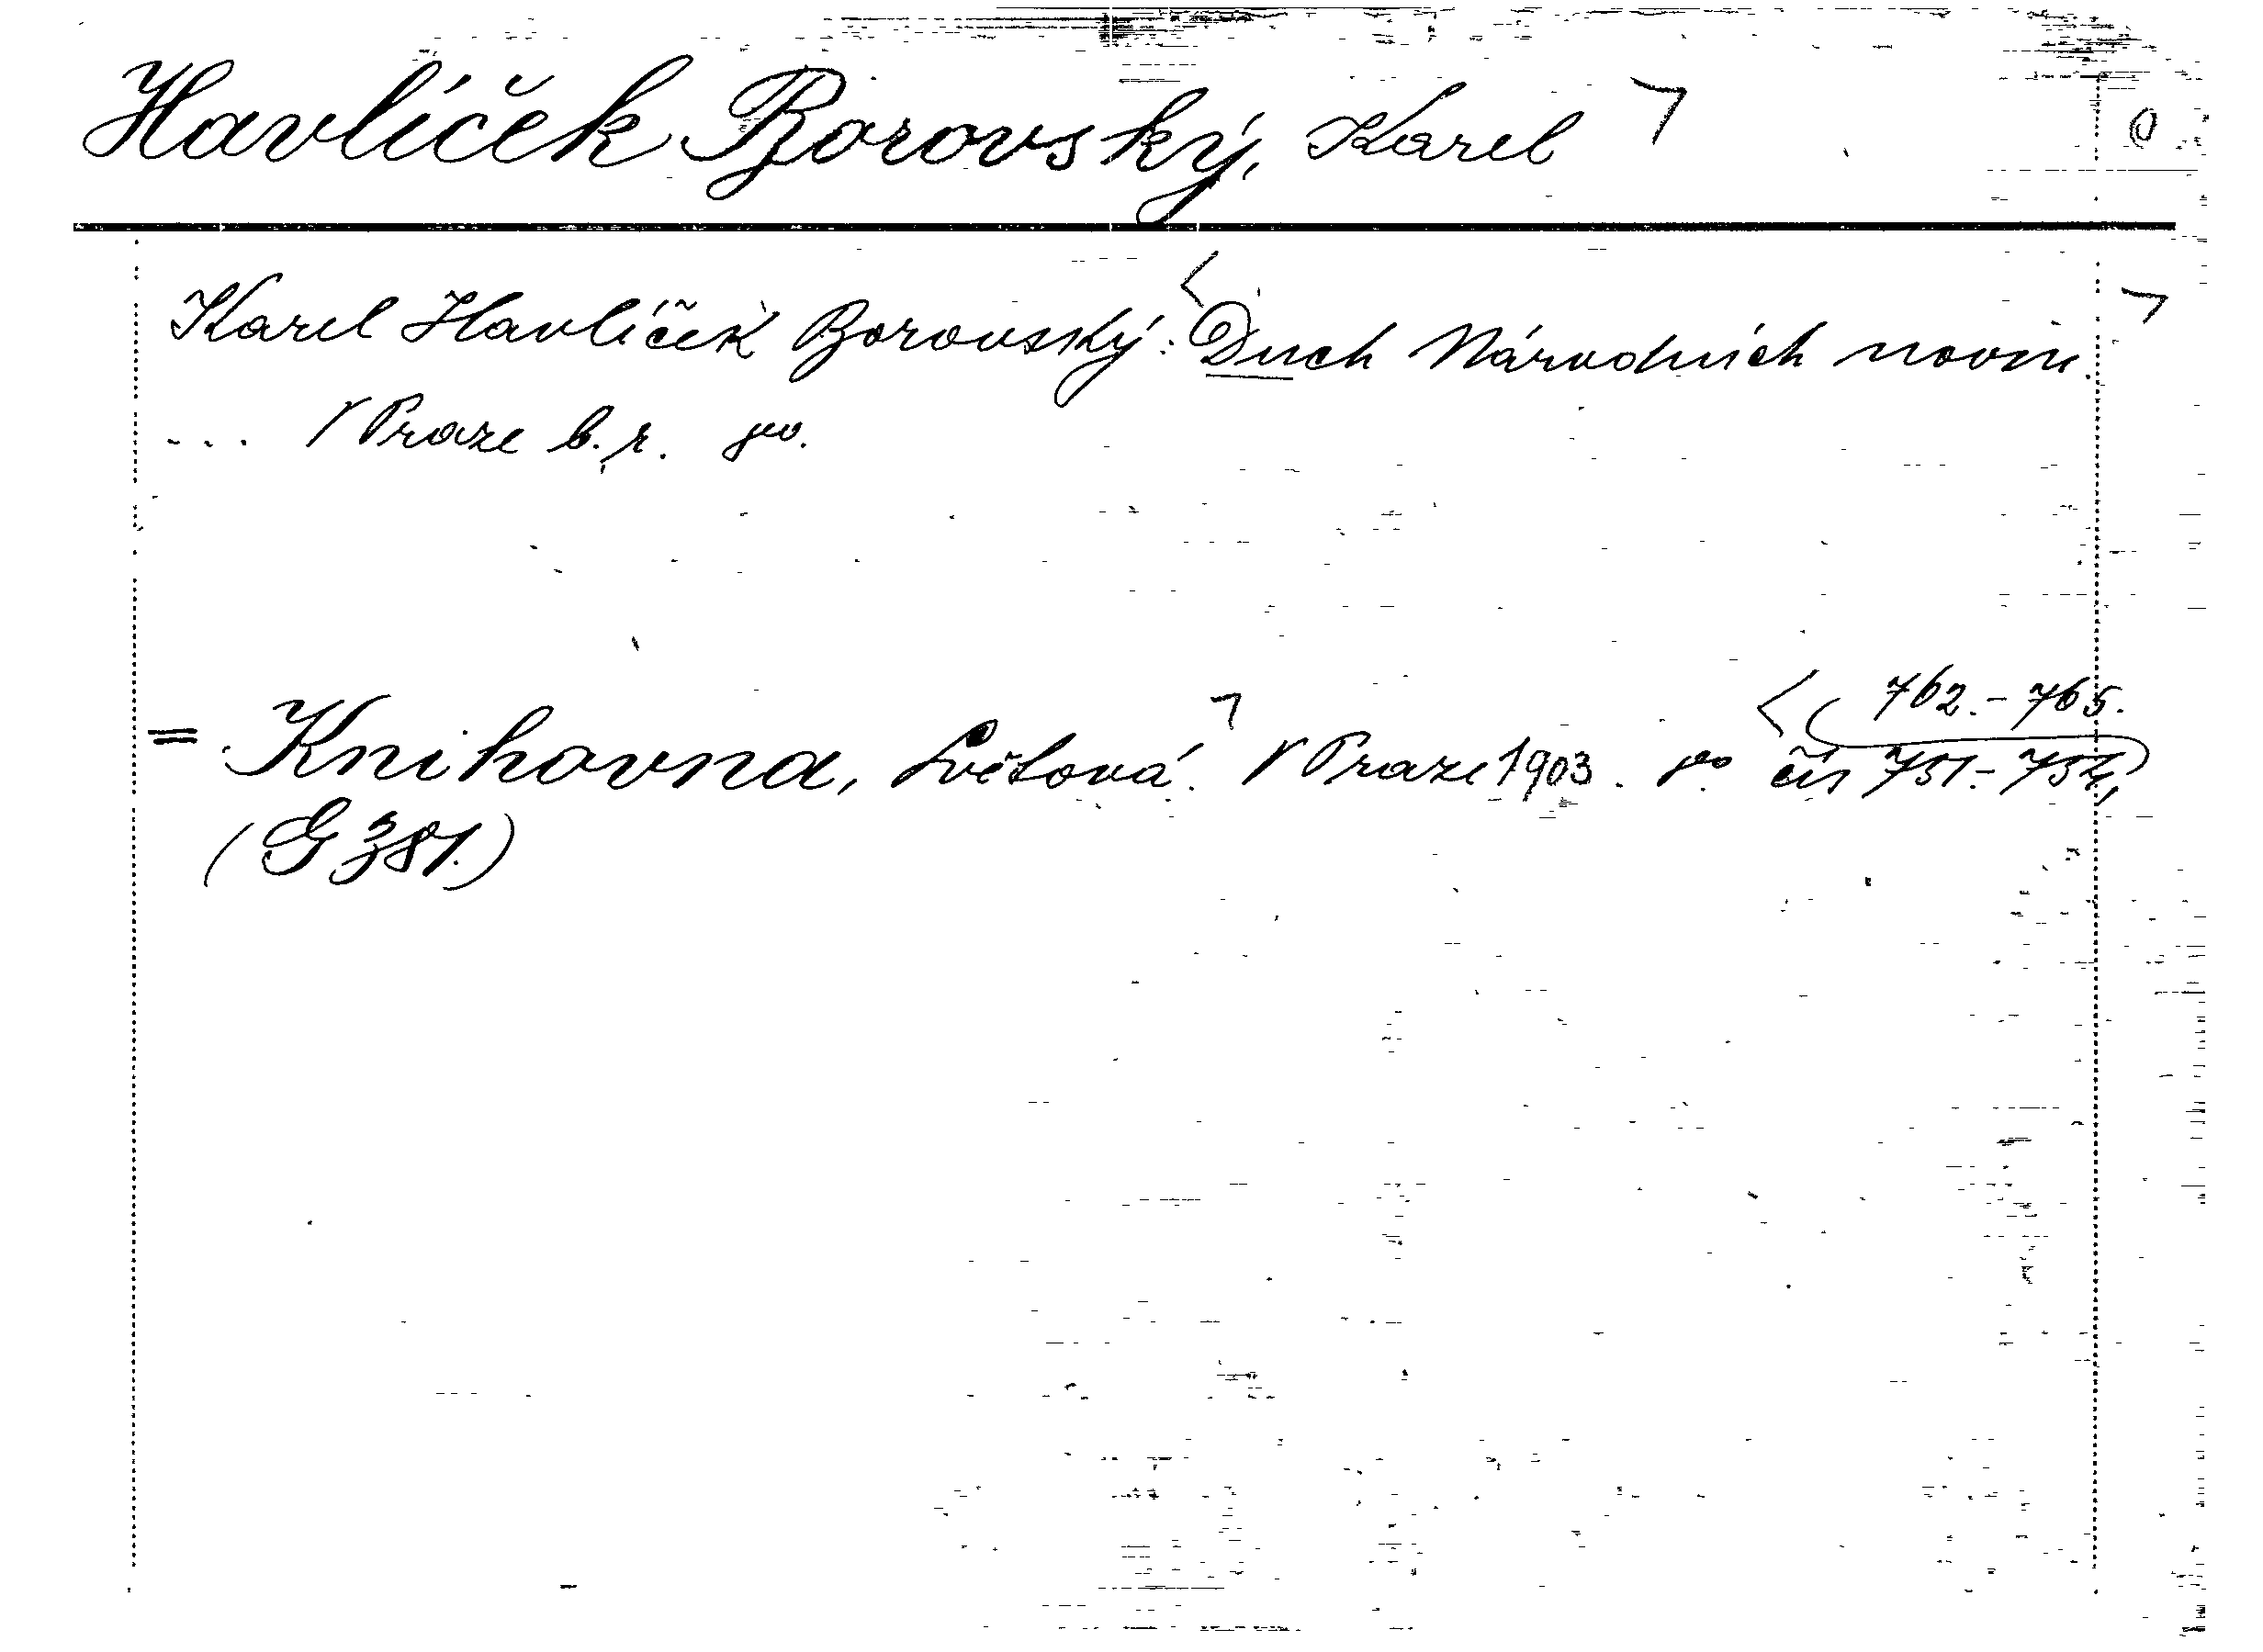 Havlíček Borovský, Karel
Karel Havlíček Borovský: Duch Národních novin.
... V Praze b. r. 8vo.
= Knihovna, Světová. V Praze 1903. 8vo čís 751.-754,
762.-765.
(G 381.)